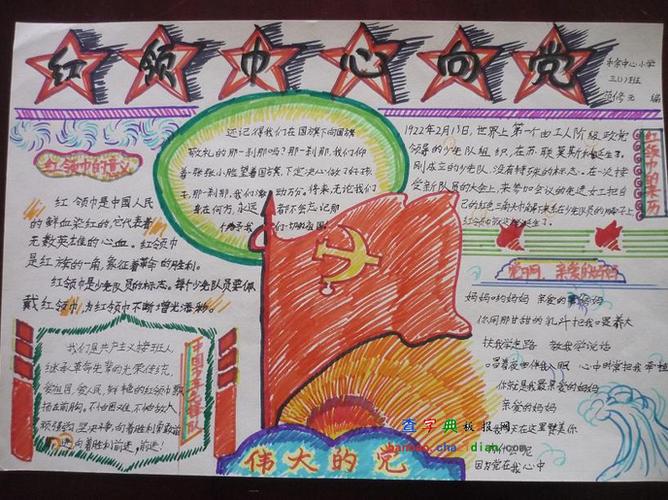 红领巾心向党
中心小学
三(1)班
范修元 编
还记得我们在国旗下向国旗
敬礼的那一刹那吗?那一刹那,我们仰
着一张张小脸望着国旗,下定决心做了好孩
子,那一刹那,我们激动万分。将来无论我们
身在何方,永远都不会忘记那
1922年2月13日,世界上第一个由工人阶级政党
领导的少先队组织,在苏联莫斯科诞生了。
刚成立的少先队,没有特殊的标志。在一次接
受新队员的大会上,来参加会议的先进女工把自
己的红色三角头巾解下来系在少先队员的脖子上
红领巾的来历
红领巾的意义
红领巾是中国人民
的鲜血染红的,它代表着
无数英雄的心血。红领巾
是红旗的一角,象征着革命的胜利。
红领巾是少先队员的标志。每个少先队员要佩
戴红领巾,为红领巾不断增光添彩。
党啊,亲爱的妈妈
妈妈哟妈妈 亲爱的妈妈
你用那甘甜的乳汁把我喂养大
扶我学走路 教我学说话
唱着夜曲伴我入眠 心中时常把我牵挂
你就是我最亲爱的妈妈
亲爱的妈妈
在这里赞美你
因为党在我心中
我们是共产主义接班人
继承革命先辈的光荣传统,
爱祖国,爱人民,鲜艳的红领巾飘
扬在前胸。不怕困难,不怕敌人
顽强学习,坚决斗争,向着胜利勇敢前
进,向着胜利前进,前进!
中国少年先锋队
伟大的党
查字典板报网
banbao.chazidian.com